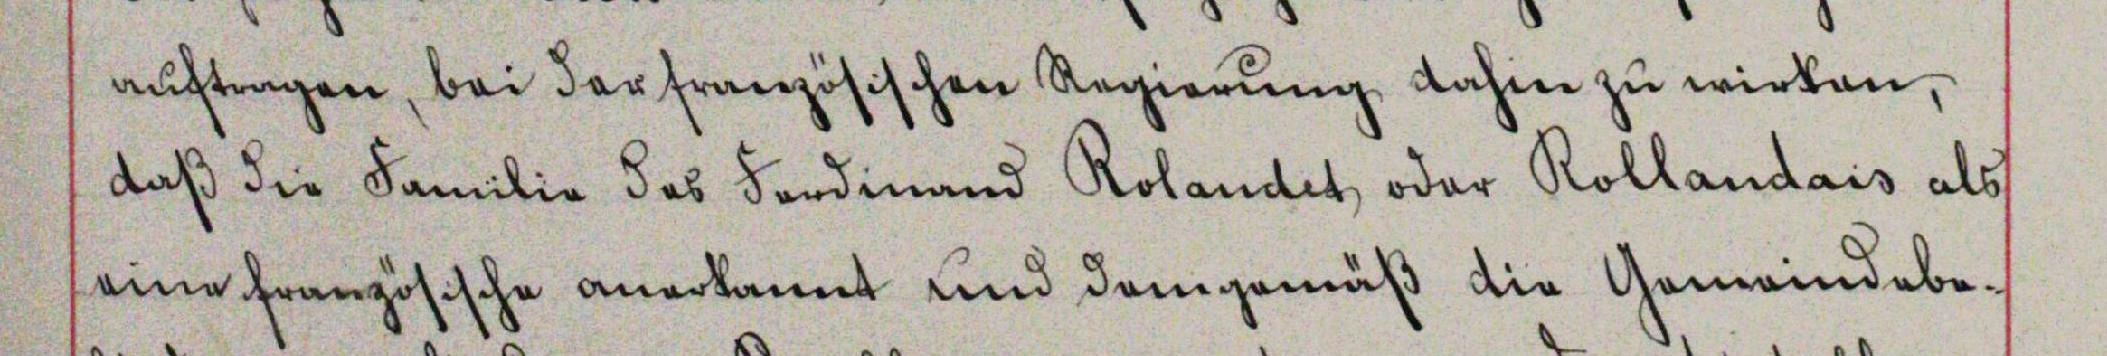 auftragen, bei der französischen Regierung dahin zu wirken,
daß die Familie des Ferdinand Rolandet, oder Rollandais als
eine französische anerkannt und demgemäß die Gemeindebe-